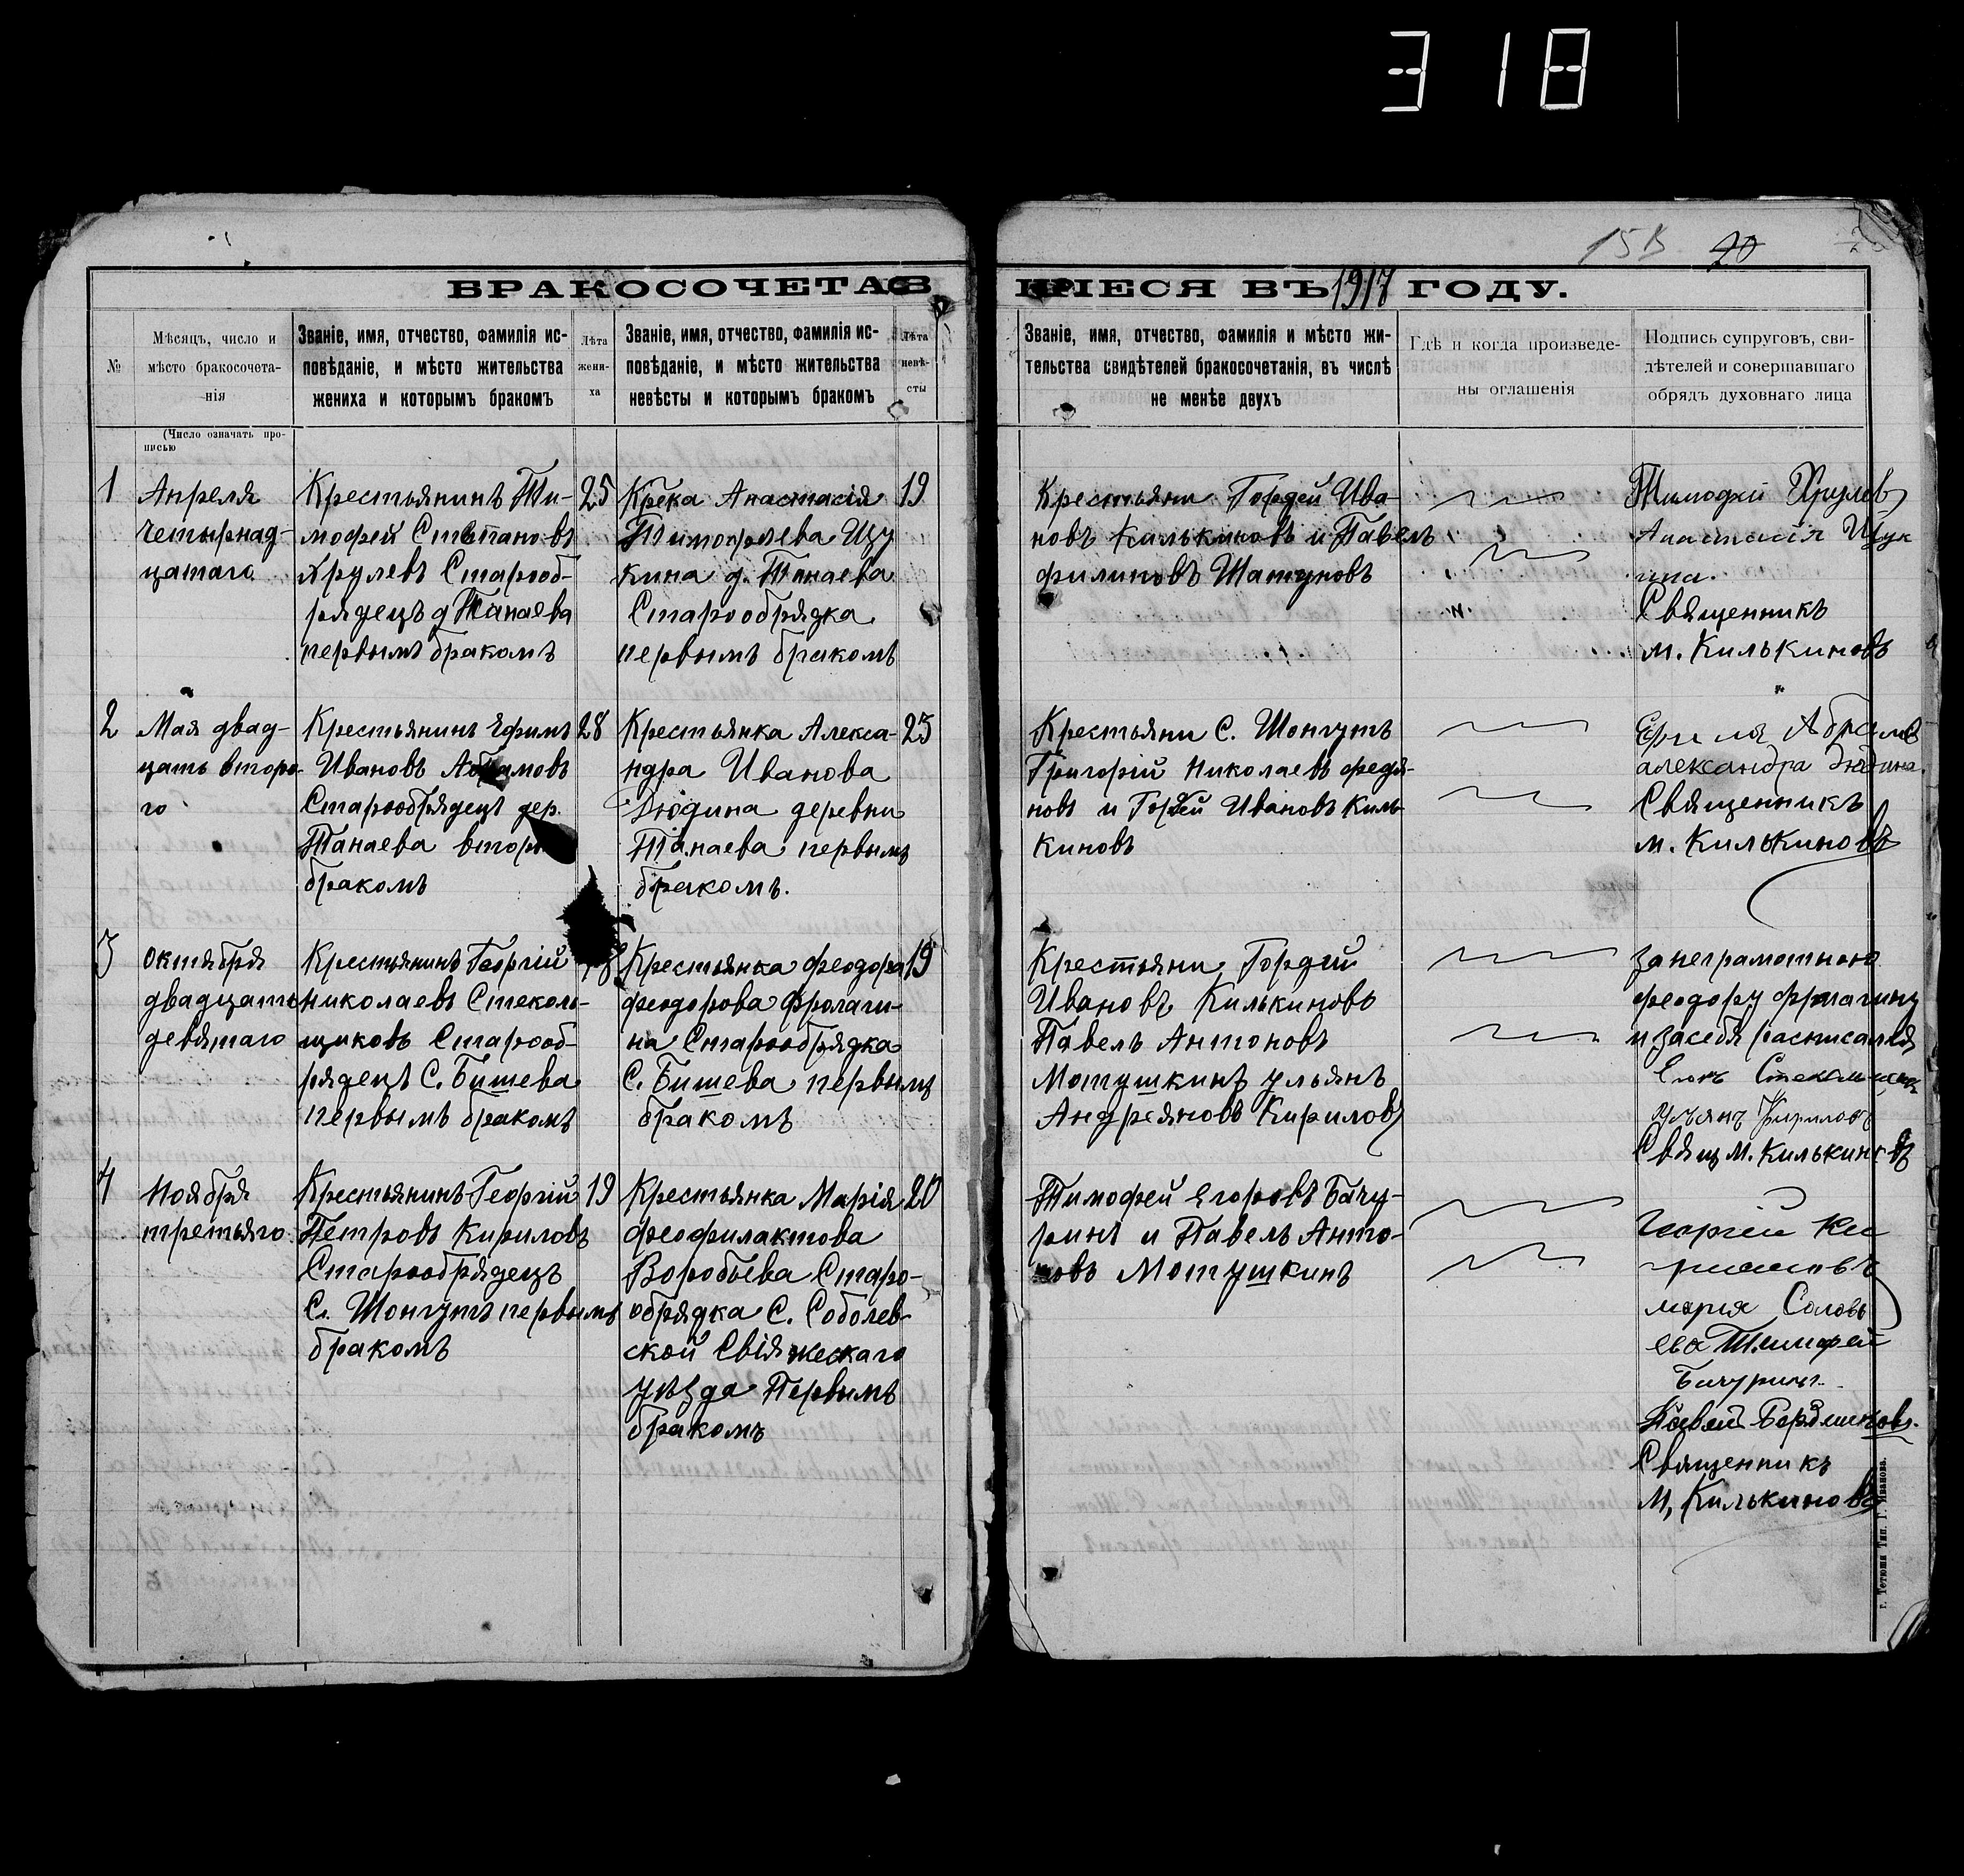 318
15В 20
БРАКОСОЧЕТАВШІЕСЯ ВЪ 1917 ГОДУ.
№
Мѣсяцъ, число и
мѣсто бракосочета-
нія
Званіе, имя, отчество, фамилія ис-
повѣданіе, и мѣсто жительства
жениха и которымъ бракомъ
Лѣта
жени-
ха
Званіе, имя, отчество, фамилія ис-
повѣданіе, и мѣсто жительства
невѣсты и которымъ бракомъ
Лѣта
невѣ-
сты
Званіе, имя, отчество, фамилія и мѣсто жи-
тельства свидѣтелей бракосочетанія, въ числѣ
не менѣе двухъ
Гдѣ и когда произведе-
ны оглашенія
Подпись супруговъ, сви-
дѣтелей и совершавшаго
обрядъ духовнаго лица
(Число означать про-
писью
1
Апреля
четырнад-
цатаго
Крестьянинъ Ти-
мофей Степановъ
Хрулевъ Старооб-
рядецъ д Танаева
первымъ бракомъ
25
Крека Анастасія
Тимофеева Щу
кина д. Танаева
Старообрядка
первымъ бракомъ
19
Крестьяни Гордей Ива-
новъ Килькиновъ и Павелъ
филиповъ Шатуновъ
Тимофей Хрулев
Анастасія Щук
ина.
Священникъ
м. Килькиновъ
2
Мая двад-
цать второ-
го
Крестьянинъ Ефимъ
Ивановъ Абрамовъ
Старообрядецъ дер.
Танаева вторы
бракомъ
28
Крестьянка Алекса-
ндра Иванова
Дюдина деревни
Танаева первымъ
бракомъ.
23
Крестьяни С. Шонгутъ
Григорій Николаевъ федя-
новъ и Гордей Ивановъ Киль
киновъ
Абрамов
александра Дюдина.
Священникъ
м. Килькиновъ
3
октября
двадцать
девятаго
Крестьянинъ Георгій
николаевъ Стеколь-
щиковъ Старооб-
рядецъ С. Бишева
первымъ бракомъ
18
Крестьянка феодора
феодорова Фролаги-
на Старообрядка
С. Бишева первымъ
бракомъ
19
Крестьяни, Гордей
Ивановъ Килькиновъ
Павелъ Антоновъ
Мотушкинъ ульянъ
Андреяновъ Кириловъ
за неграмотною
феодору
и засебя расписался
Ульянъ Кириловъ
Свящ М. Килькиновъ
4
Ноября
третьяго
Крестьянинъ Георгій
Петровъ Кириловъ
Старообрядецъ
С. Шонгутъ первымъ
бракомъ
19
Крестьянка Марія
феофилактова
Воробьева Старо-
обрядка С. Соболев-
ской Свіяжескаго
уѣзда Первымъ
бракомъ
20
Тимофей Егоровъ Бачу-
ринъ и Павелъ Анто-
новъ Мотушкинъ
Георгій Ки
риловъ
мария Соловь
ева Тимофей
Бачурин
Павел
Священникъ
М. Килькиновъ
г. Тетюши Тип. Г. Иванова.